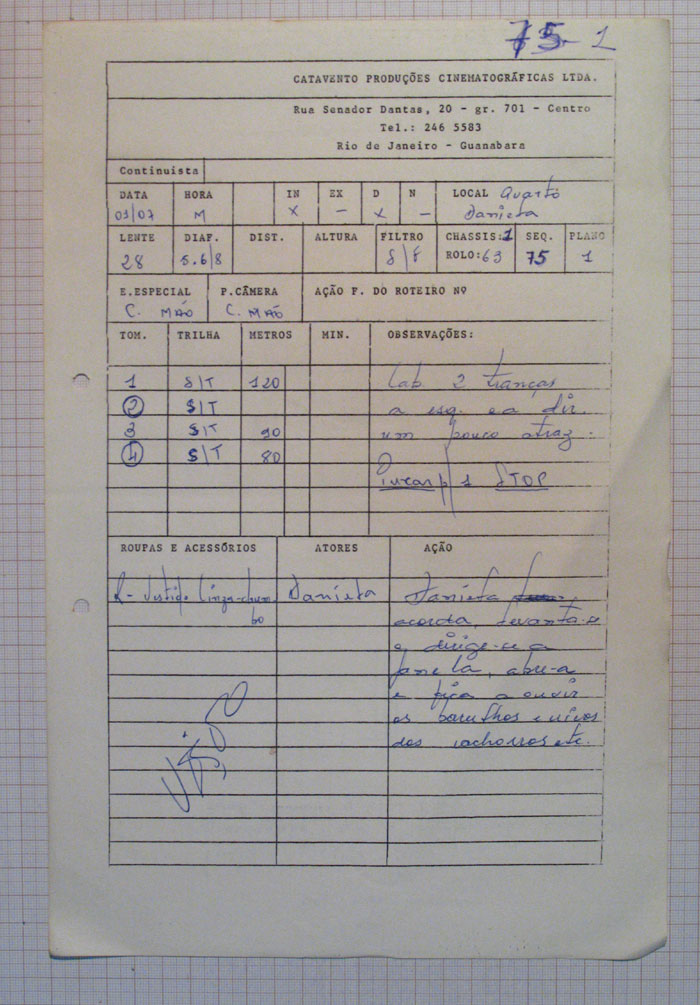 75 1
CATAVENTO PRODUÇÕES CINEMATOGRÁFICAS LTDA.
Rua Senador Dantas, 20 - gr. 701 - Centro
Tel.: 246 5583
Rio de Janeiro - Guanabara
Continuista
DATA HORA IN EX D N LOCAL Quarto
03/07 M X — X — Daniela
LENTE DIAF. DIST. ALTURA FILTRO CHASSIS: 1 SEQ. PLANO
28 5.6/8 ROLO: 63 75 1
E.ESPECIAL P.CÂMERA AÇÃO F. DO ROTEIRO Nº
C. MÃO C. MÃO
TOM. TRILHA METROS MIN. OBSERVAÇÕES:
1 S/T 120 Cab. 2 tranças
2 S/T a esq. e a dir.
3 S/T 90 um pouco atraz.
4 S/T 80
Puxar p/ 1 STOP
ROUPAS E ACESSÓRIOS ATORES AÇÃO
R- Vestido Cinza-chum Daniela Daniela
bo acorda, levanta-se
e dirige-se a
janela, abre-a
e fica a ouvir
os barulhos e uivos
dos cachorros etc.